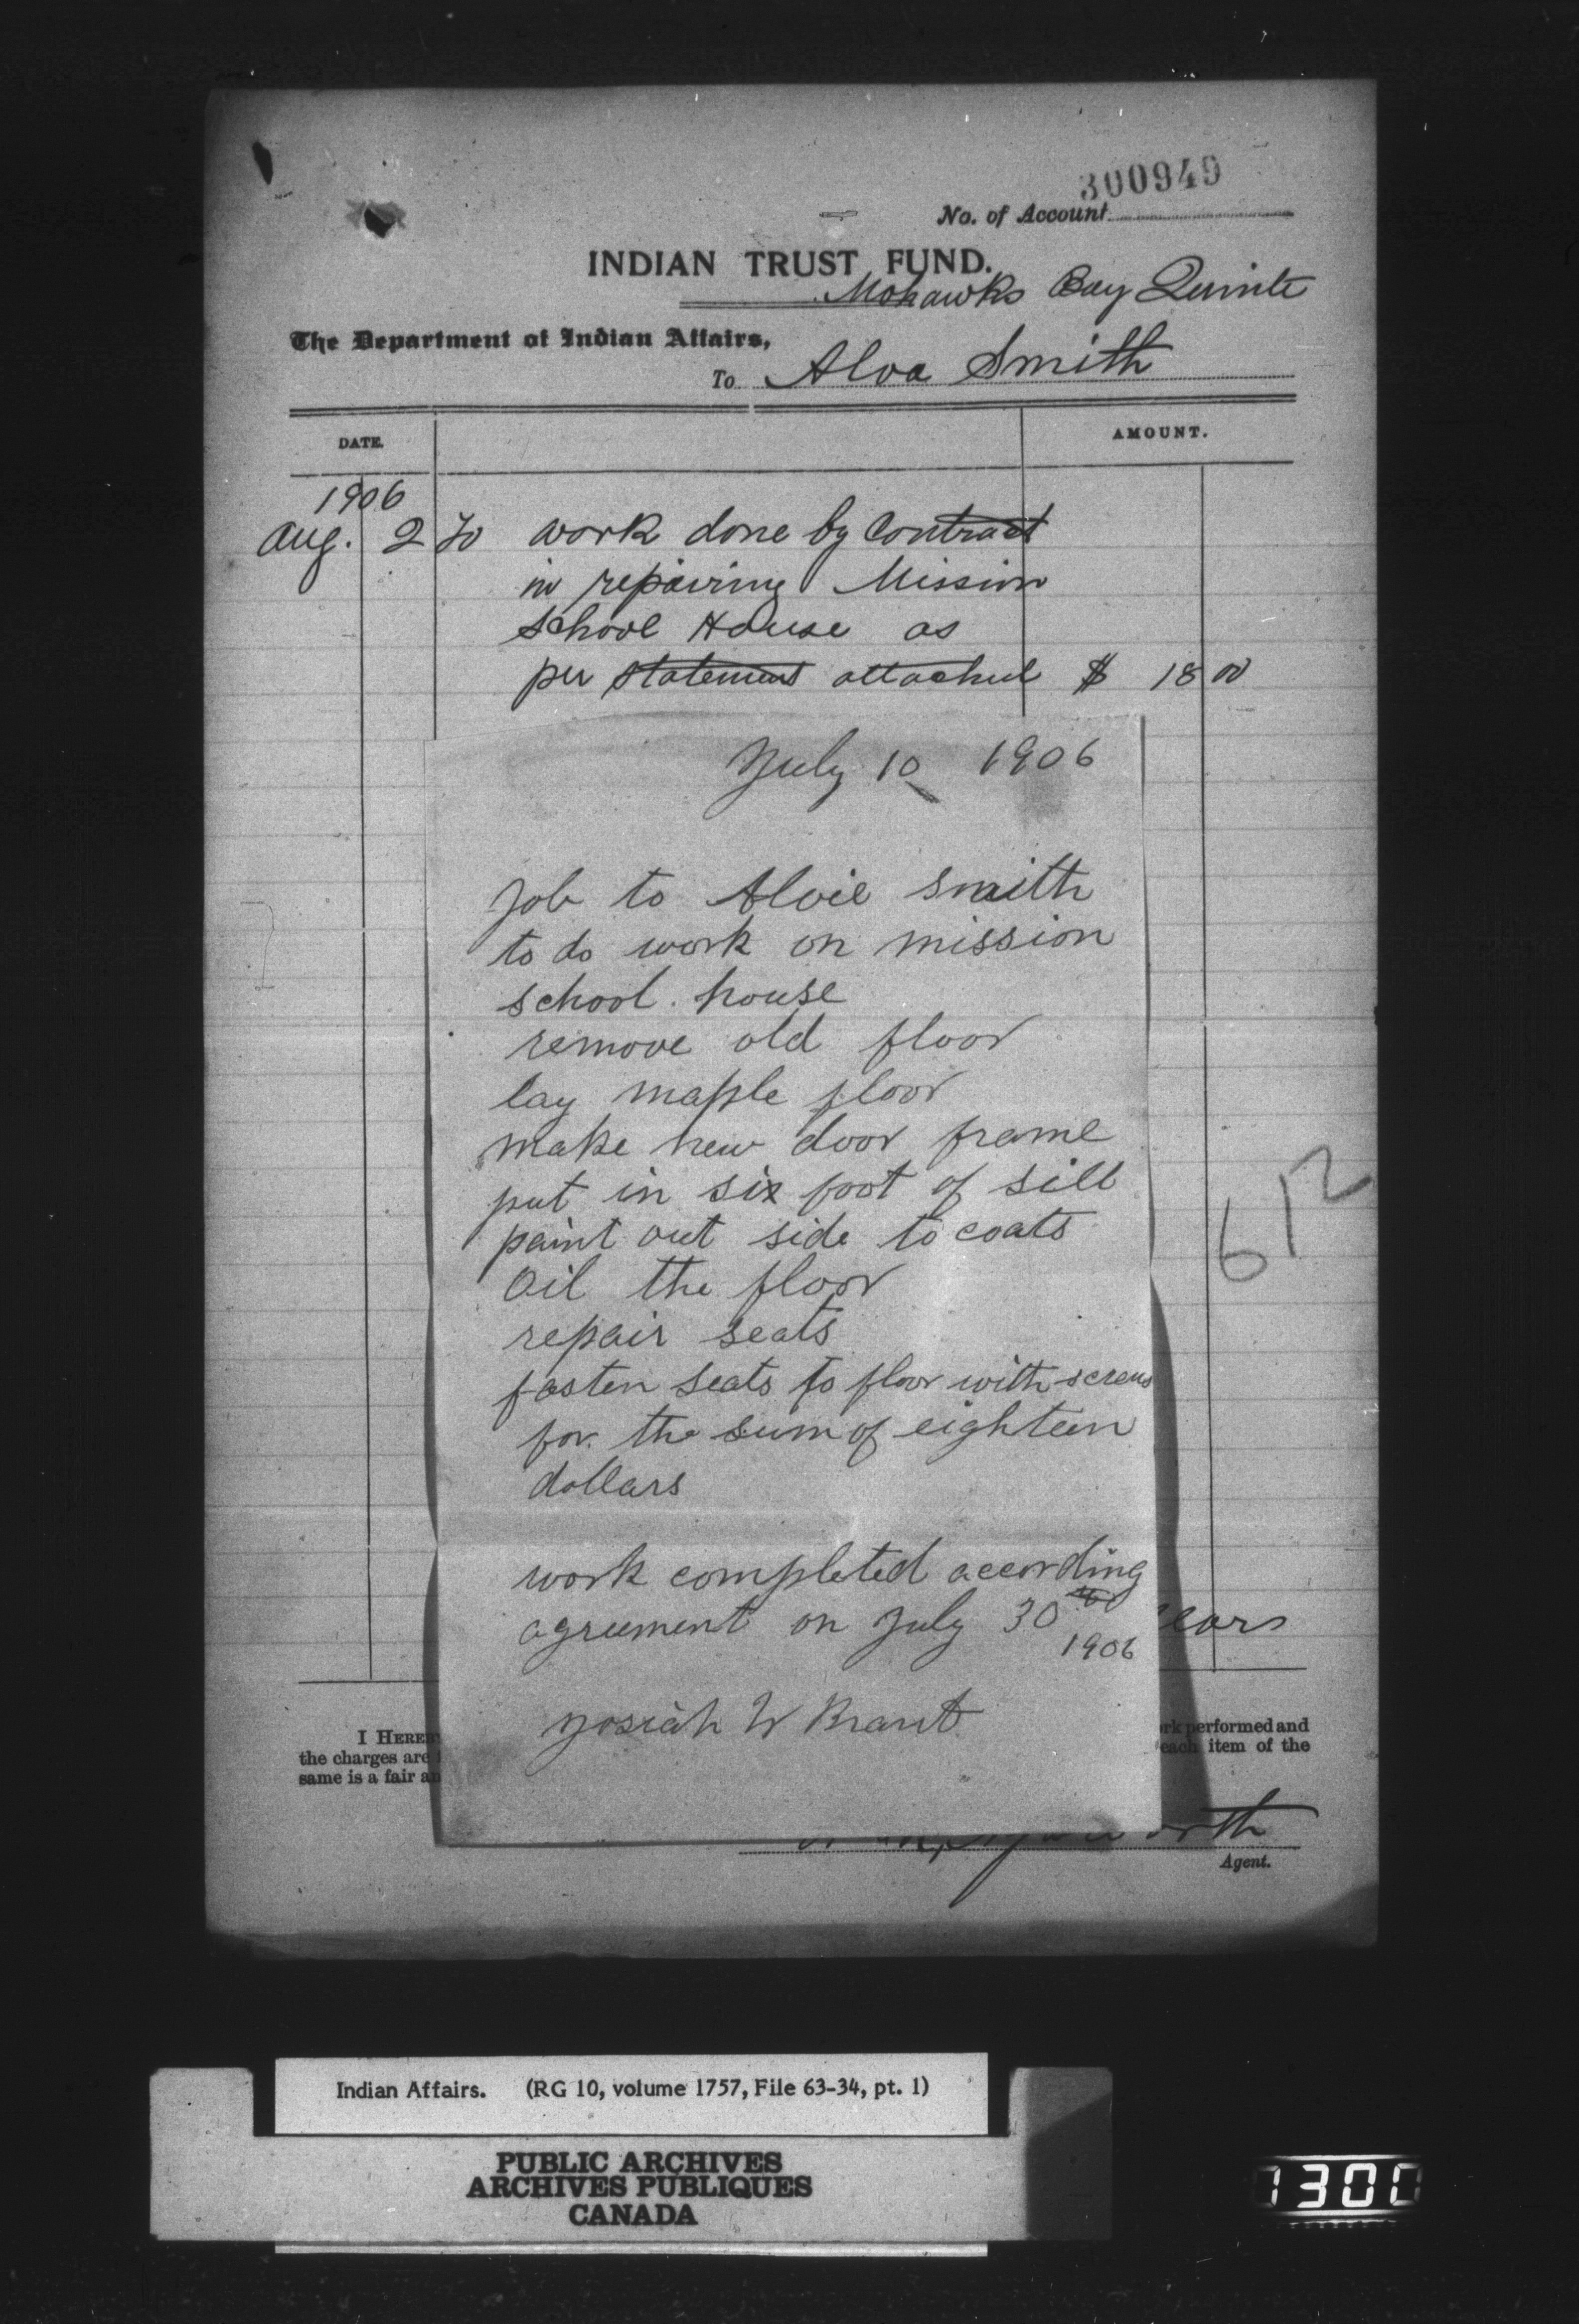 300949
No. of Account
INDIAN TRUST FUND.
Mohawks Bay Quinte
The Department of Indian Affairs,
To Alva Smith
DATE. AMOUNT.
1906
Aug. 2 To work done by Contract
in repairing Mission
School House as
per statement attached $ 18 00
July 10 1906
Job to Alvie Smith
to do work on mission
school. house
remove old floor
lay maple floor
make new door frame
put in six foot of sill
paint out side to coats
Oil the floor
repair seats
fasten seats to floor with screws
for the sum of eighteen
dollars
work completed according
to
agreement on July 30
1906
Josiah W Brant
612
I HERE
the charges are
same is a fair an
rk performed and
each item of the
Agent.
Indian Affairs. (RG 10, volume 1757, File 63-34, pt. 1)
PUBLIC ARCHIVES
ARCHIVES PUBLIQUES
CANADA
1300